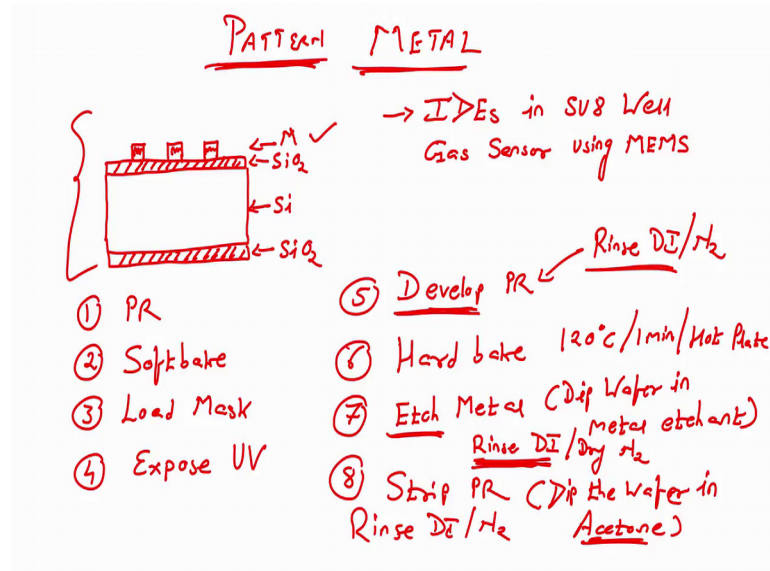 PATTERN METAL
→ IDEs in SU8 Well
Gas Sensor using MEMS
M ✓
SiO2
Si
SiO2
M M M
① PR
② Softbake
③ Load Mask
④ Expose UV
Rinse DI/N2
⑤ Develop PR
⑥ Hard bake 120°C/1min/Hot Plate
⑦ Etch Metal (Dip Wafer in
metal etchant)
Rinse DI/Dry N2
⑧ Strip PR (Dip the Wafer in
Rinse DI/N2 Acetone)